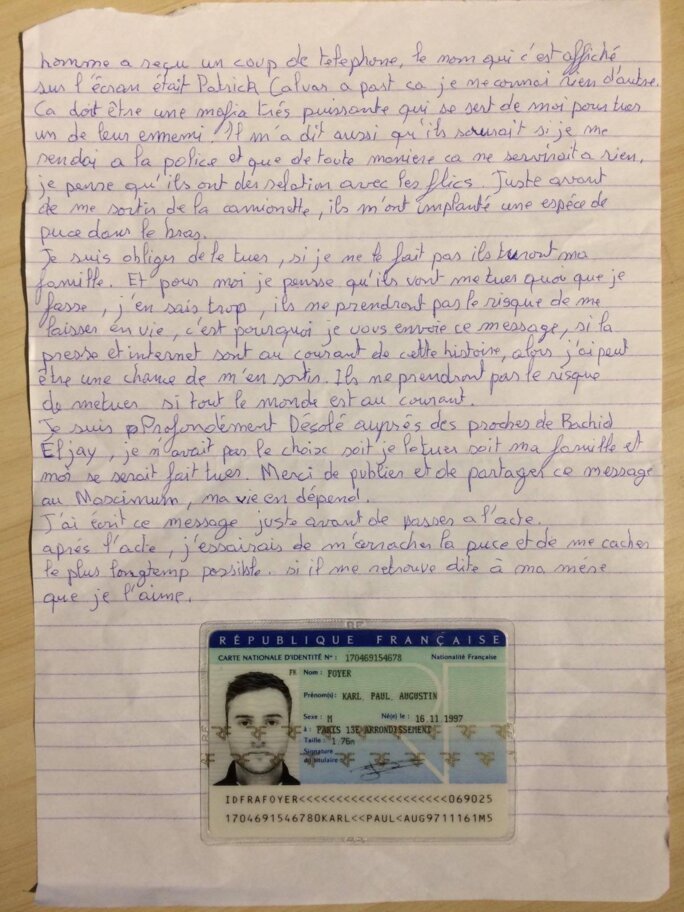 homme a reçu un coup de telephone, le nom qui c'est affiché
sur l'écran était Patrick Calvar a part ca je ne connai rien d'autre.
Ca doit être une mafia trés puissante qui se sert de moi pour tuer
un de leur ennemi. Il m'a dit aussi qu'ils saurait si je me
rendai a la police et que de toute maniere ca ne servirait a rien,
je pense qu'ils ont des relation avec les flics. Juste avant
de me sortir de la camionette, ils m'ont implanté une espéce de
puce dans le bras.
Je suis obliger de le tuer, si je ne le fait pas ils turont ma
famille. Et pour moi je pensse qu'ils vont me tuer quoi que je
fasse, j'en sais trop, ils ne prendront pas le risque de me
laisser en vie, c'est pourquoi je vous envoie ce message, si la
presse et internet sont au courant de cette histoire, alors j'ai peut
être une chance de m'en sortir. Ils ne prendront pas le risque
de me tuer si tout le monde est au courant.
Je suis Profondément Désolé auprés des proches de Rachid
Eljay, je n'avait pas le choix soit je le tuer soit ma famille et
moi se serait fait tuer. Merci de publier et de partager ce message
au Maximum, ma vie en dépend.
J'ai écrit ce message juste avant de passer a l'acte.
aprés l'acte, j'essairais de m'arracher la puce et de me cacher
le plus longtemp possible. si il me retrouve dite à ma mére
que je l'aime.
RÉPUBLIQUE FRANÇAISE
CARTE NATIONALE D'IDENTITÉ N° : 170469154678 Nationalité Française
Nom : FOYER
Prénom(s) : KARL, PAUL, AUGUSTIN
Sexe : M Né(e) le : 16.11.1997
à : PARIS 13E ARRONDISSEMENT
Taille : 1.76m
Signature
du titulaire :
IDFRAFOYER<<<<<<<<<<<<<<<<<<<<069025
1704691546780KARL<<PAUL<AUG9711161M5